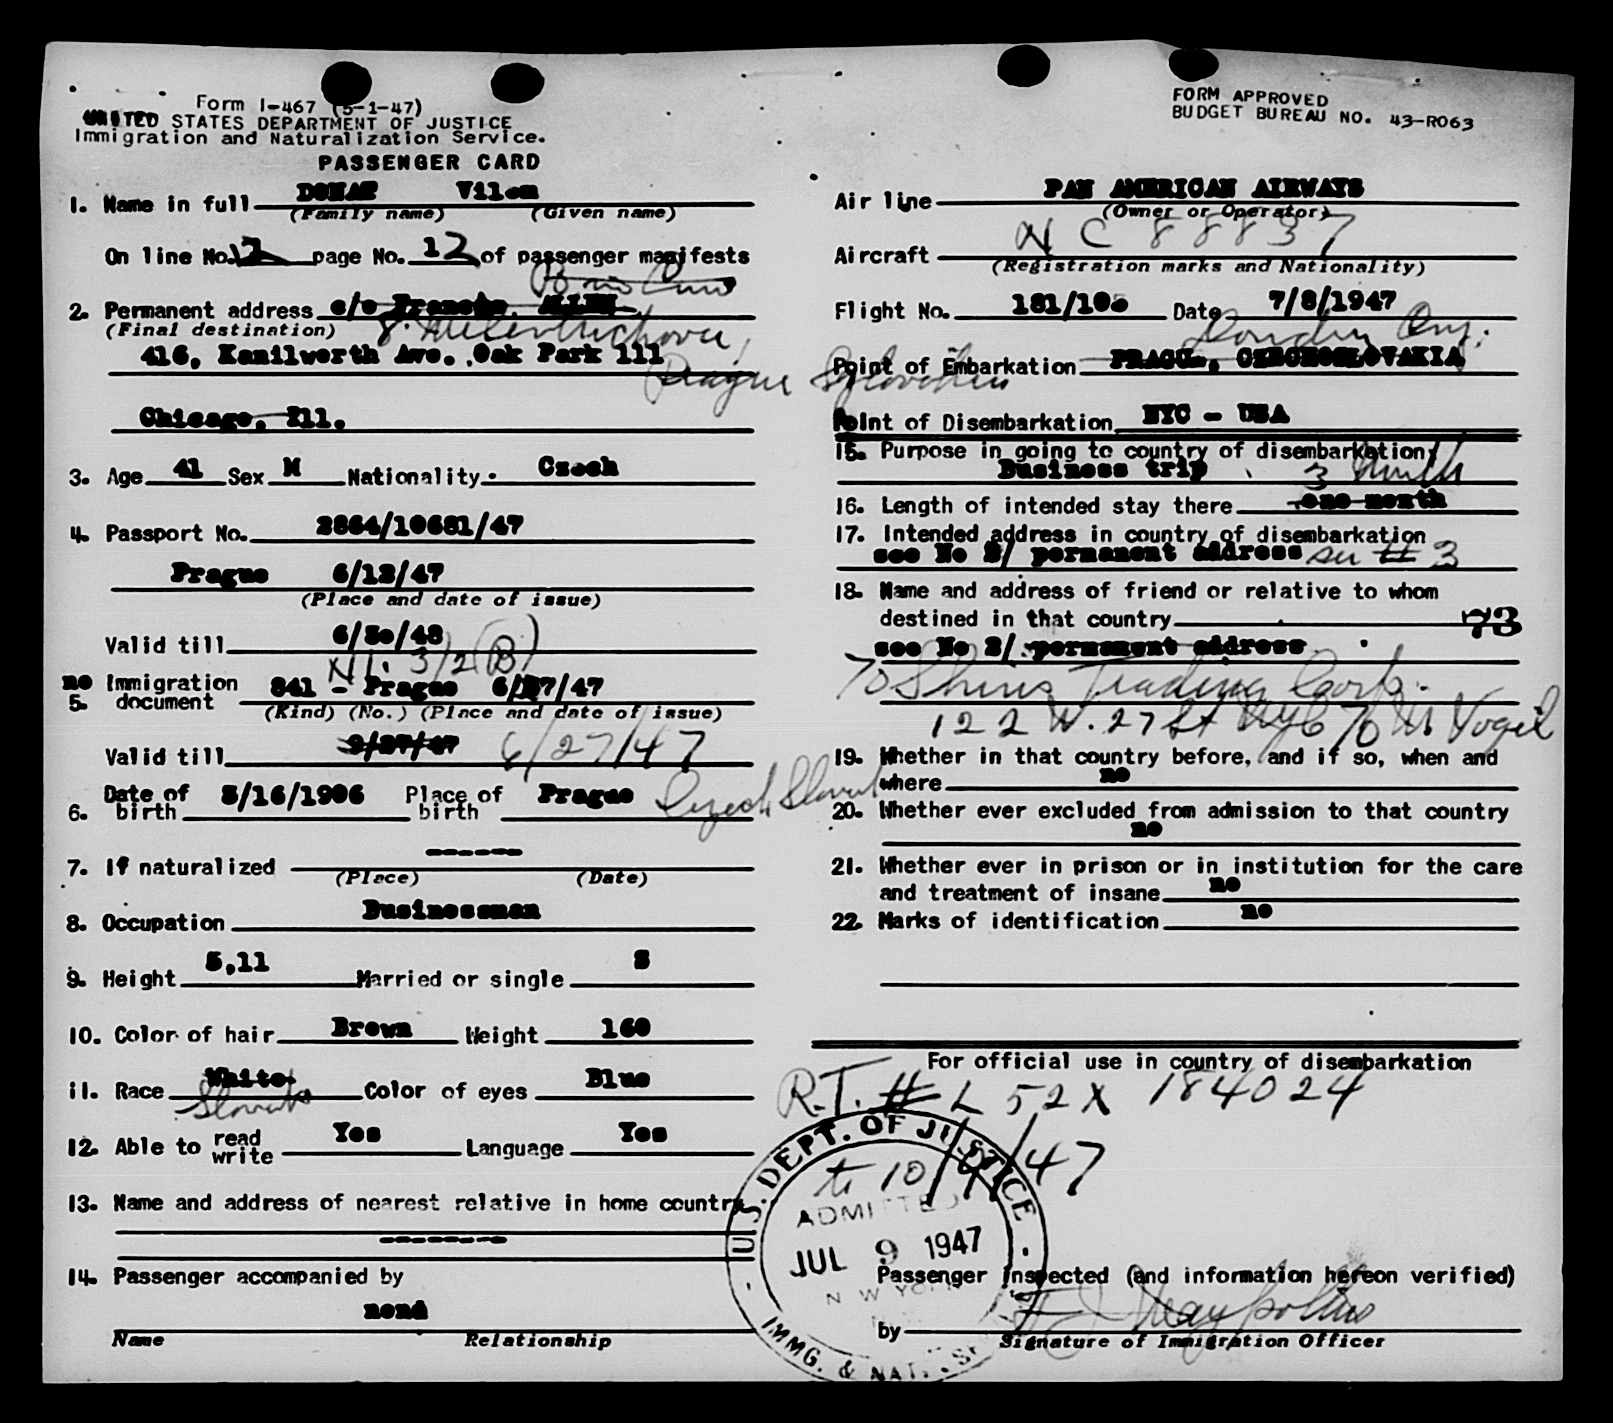 Form I-467 (5-1-47)
UNITED STATES DEPARTMENT OF JUSTICE
Immigration and Naturalization Service.
PASSENGER CARD
1. Name in full Vilem
(Family name) (Given name)
On line No. 12 page No. 12 of passenger manifests
2. Permanent address c/o ALLEN
(Final destination)
416, Kenilworth Ave. Oak Park Ill
Prague
Chicago, Ill.
3. Age 41 Sex M Nationality. Czech
4. Passport No. 2864/10681/47
Prague 6/12/47
(Place and date of issue)
Valid till 6/30/48
3/2(B)
no Immigration
5. document 841 - Prague 6/27/47
(Kind) (No.) (Place and date of issue)
Valid till 9/27/47 6/27/47
6. Date of birth 3/16/1906 Place of birth Prague
7. If naturalized ------
(Place) (Date)
8. Occupation Businessman
9. Height 5,11 Married or single S
10. Color of hair Brown Weight 160
11. Race White. Color of eyes Blue
12. Able to read write Yes Language Yes
13. Name and address of nearest relative in home country
--------
14. Passenger accompanied by
Name Relationship
FORM APPROVED
BUDGET BUREAU NO. 43-R063
Air line PAN AMERICAN AIRWAYS
(Owner or Operator)
Aircraft NC 88837
(Registration marks and Nationality)
Flight No. Date 7/8/1947
London Eng.
Point of Embarkation CZECHOSLOVAKIA
Point of Disembarkation NYC - USA
15. Purpose in going to country of disembarkation
Business trip
3 months
16. Length of intended stay there one month
17. Intended address in country of disembarkation
see No 2/ permanent address see # 3
18. Name and address of friend or relative to whom
destined in that country 73
see No 2/ permanent address
Trading Corp.
122 W. 27 St NYC
19. Whether in that country before, and if so, when and
where no
20. Whether ever excluded from admission to that country
no
21. Whether ever in prison or in institution for the care
and treatment of insane no
22. Marks of identification no
For official use in country of disembarkation
R.T. # L 52 X 184024
U.S. DEPT. OF JUSTICE
ADMITTED
JUL 9 1947
NEW YORK
IMMG. & NAT.
Passenger inspected (and information hereon verified)
by
Signature of Immigration Officer